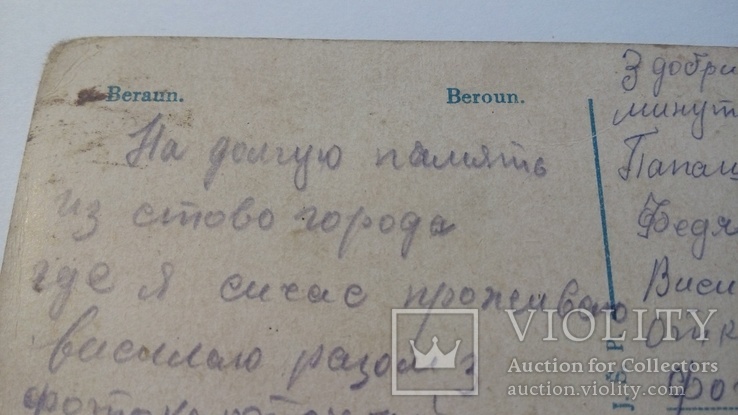 Beraun. Beroun.
На долгую память
из етово города
где я сичас проживаю
висилаю разом з
З добри
минут
Папаш
Федя
Виси
фо
VIOLITY
Auction for Collectors
auction.violity.com